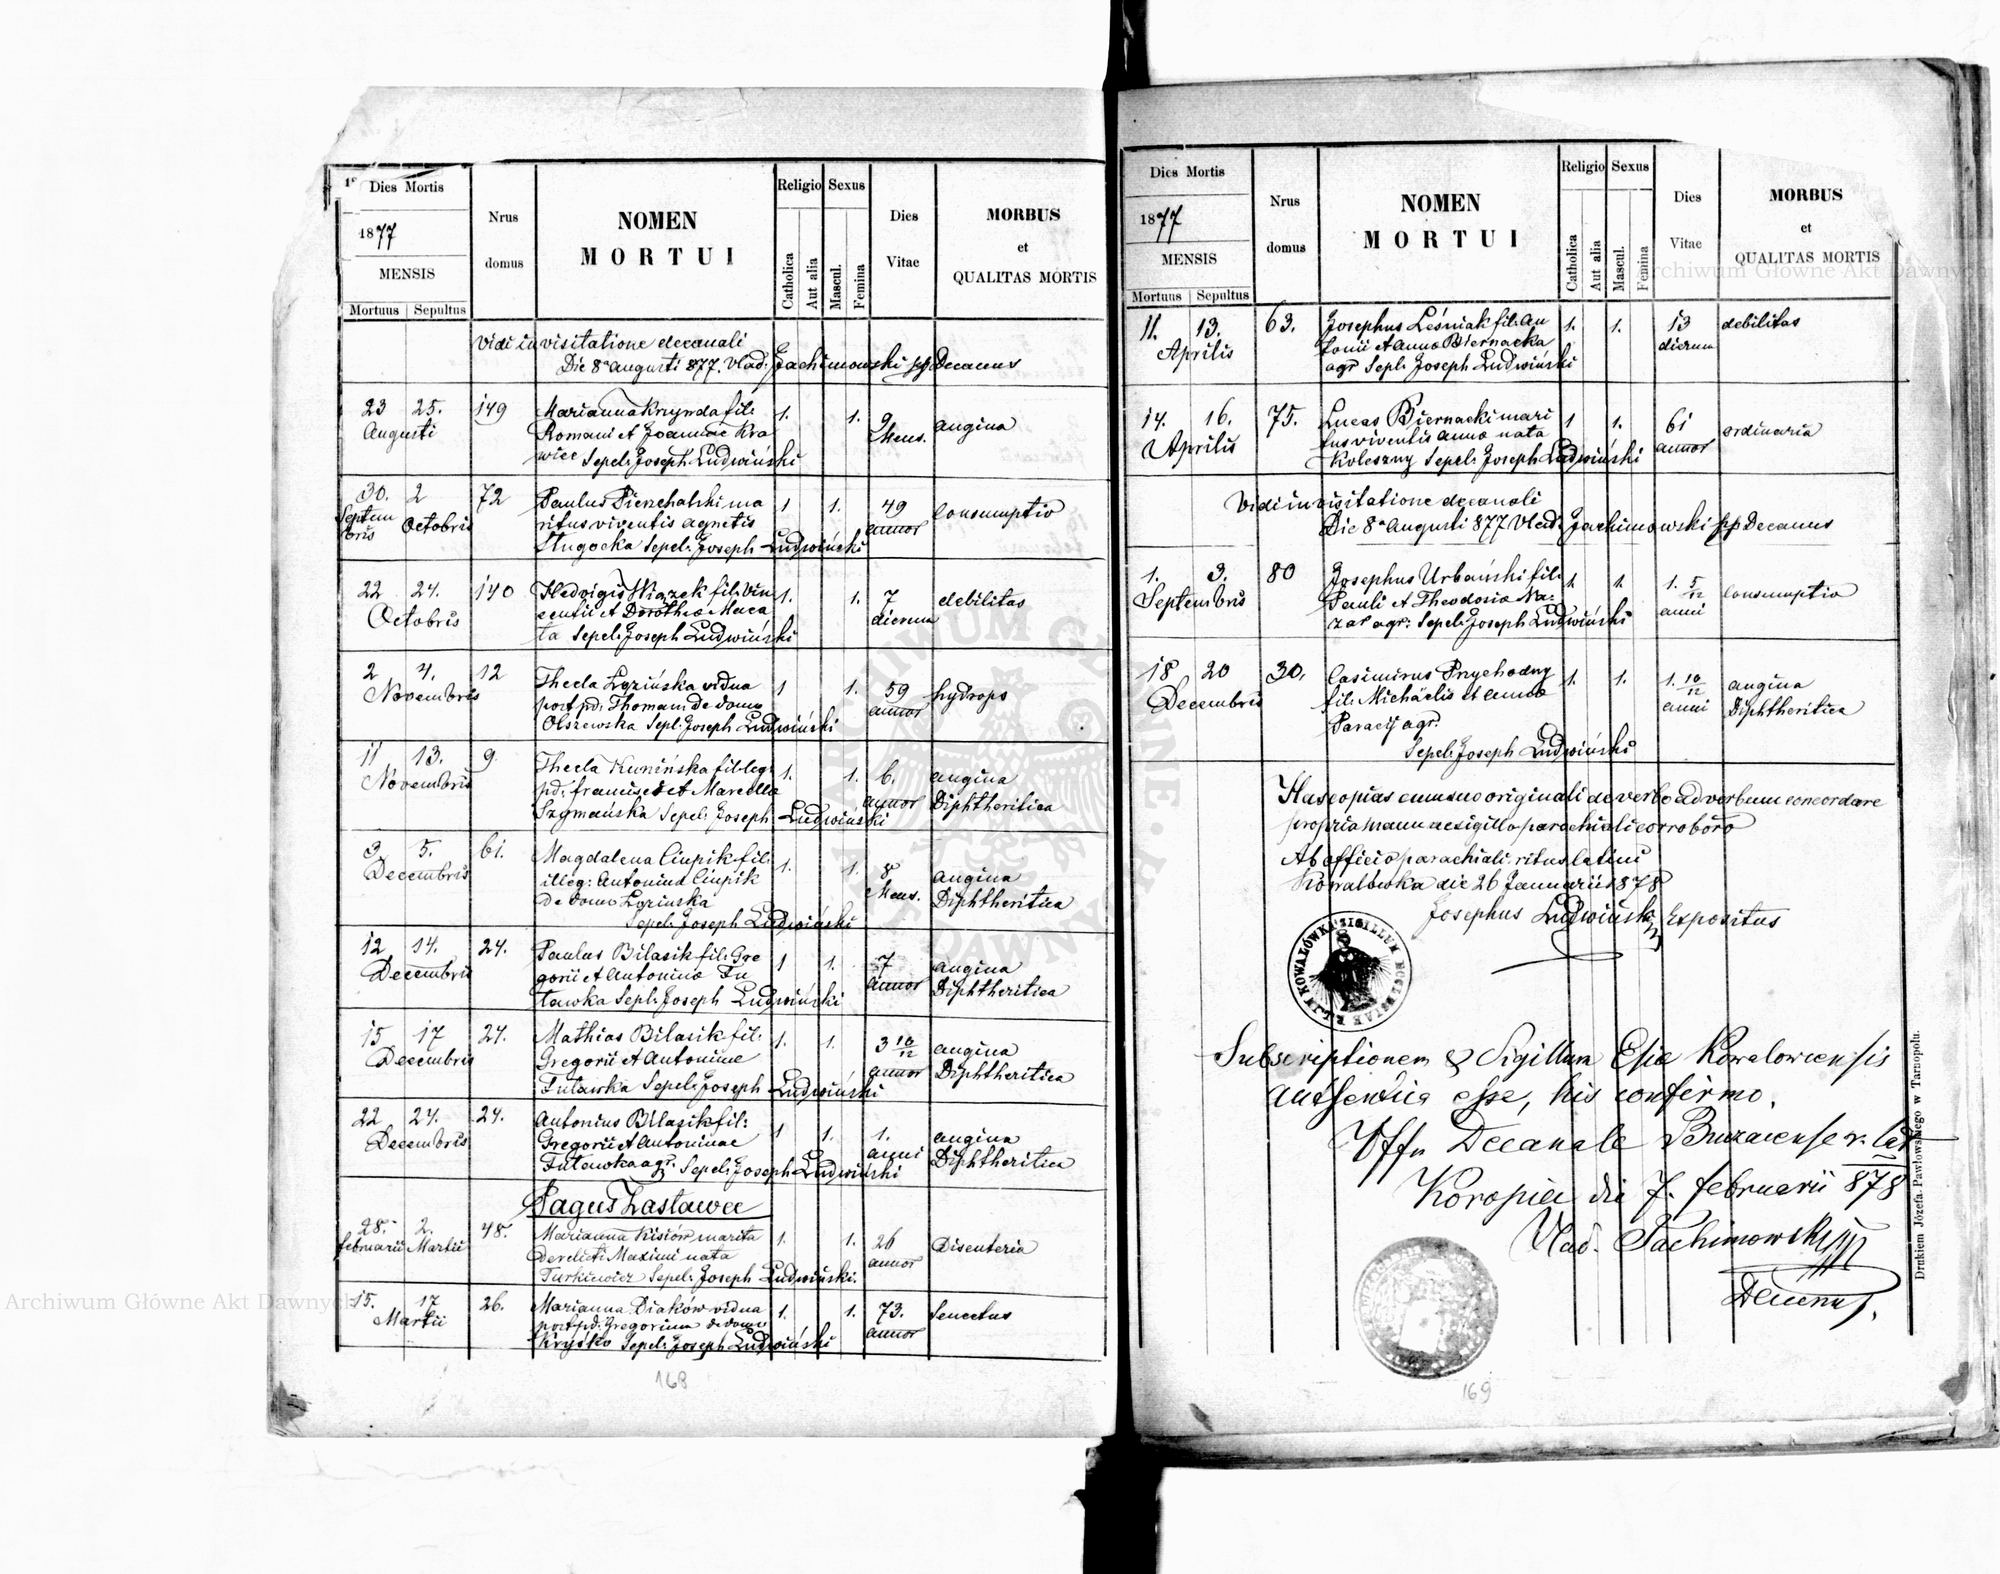 Dies Mortis
1877
MENSIS
Mortuus Sepultus
Nrus domus
NOMEN
MORTUI
Religio Sexus
Catholica Aut alia Mascul. Femina
Dies Vitae
MORBUS
et
QUALITAS MORTIS
Vidi in visitatione decanali
Die 8a Augusti 877. Vlad: Jachimowski pp Decanus
23 25. 149 Marianna Krzynda fil: 1. 1. 9 angina
Augusti Romani et Joannae Kra Mens.
wiec Sepel: Joseph Ludwiński
30. 2 72 Paulus Pienchalski ma 1 1. 49 consumptio
Septem Octobris ritus viventis Agnetis annor
bris Długocka Sepel: Joseph Ludwiński
22 24. 140 Hedvigis Wiązek fil: Vin 1. 1. 7 debilitas
Octobris centii et Dorothea Maca dierum
ta Sepel: Joseph Ludwiński
2 4. 12 Thecla Łozińska vidua 1 1. 59 hydrops
Novembris post pd: Thomam de domo annor
Olszewska Sepl: Joseph Ludwiński
11 13. 9. Thecla Kunińska fil: leg: 1. 1. 6. angina
Novembris pd: francisci et Marcella annor Diphtheritica
Szymańska Sepel: Joseph Ludwiński
3 5. 61. Magdalena Ciupik fil: 1. 1. 8 angina
Decembris illeg: Antonina Ciupik Mens. Diphtheritica
de domo Łozinska
Sepel: Joseph Ludwiński
12 14. 24. Paulus Bilasik fil: Gre 1 1. 7 angina
Decembris gorii et Antonina Tu annor Diphtheritica
tawka Sepl: Joseph Ludwiński
15 17 24. Mathias Bilasik fil: 1. 1. 3 10/12 angina
Decembris Gregorii et Antoninae annor Diphtheritica
Tutawka Sepel: Joseph Ludwiński
22 24. 24. Antonius Bilasik fil: 1 1. 1. angina
Decembris Gregorii et Antoninae anni Diphtheritica
Tutawka agr. Sepel: Joseph Ludwiński
Pagus Zastawce
28. 2. 48. Marianna Kisiów marita 1. 1. 26 Disenteria
februarii Martii derelicti Maximi nata annor
Turkiewicz Sepel: Joseph Ludwiński.
15. 17 26. Marianna Diaków vidua 1. 1. 73. Senectus
Martii post pd: Gregorium de domo annor
Kryśko Sepel: Joseph Ludwiński
168
Dies Mortis
1877
MENSIS
Mortuus Sepultus
Nrus domus
NOMEN
MORTUI
Religio Sexus
Catholica Aut alia Mascul. Femina
Dies Vitae
MORBUS
et
QUALITAS MORTIS
11. 13. 63. Josephus Leśniak fil: An 1. 1. 13 debilitas
Aprilis tonii et Anna Biernacka dierum
agr Sepl: Joseph Ludwiński
14. 16. 75. Lucas Biernacki mari 1 1. 61 ordinaria
Aprilis tus viventis Anna nata annor
Koleszny Sepel: Joseph Ludwiński
Vidi in visitatione decanali
Die 8a Augusti 877 Vlad: Jachimowski pp Decanus
1. 3. 80 Josephus Urbański fil: 1 1. 1. 5/12 consumptio
Septembris Pauli et Theodosia Na: anni
zar agr: Sepel: Joseph Ludwiński
18 20 30. Casimirus Przychodny 1. 1. 1. 10/12 angina
Decembris fil: Michaelis et Anna anni Diphtheritica
Paracij agr.
Sepel: Joseph Ludwiński
Has copias cum suo originali de verbo ad verbum concordare
propria manu ac sigillo parachiali corroboro
Ab officio parachiali ritus latini
Kowalówka die 26 Januarii 1878
Josephus Ludwiński Expositus
SIGILLUM ECCLESIAE R.L. IN KOWALÓWKA
Subscriptionem & Sigillum Esiae Kowaloviensis
authentica esse, his confirmo.
Offm Decanale Buzacense r. lat
Koropiec die 7. februarii 878
Vlad. Jachimowski
Decanus.
Drukiem Józefa Pawłowskiego w Tarnopolu.
169
Archiwum Główne Akt Dawnych
Archiwum Główne Akt Dawnych
ARCHIWUM GŁÓWNE AKT DAWNYCH